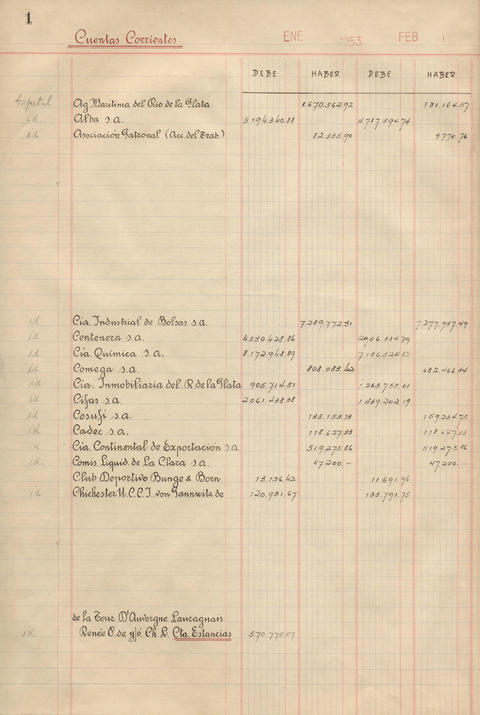 1
Cuentas Corrientes ENE 1953 FEB
DEBE HABER DEBE HABER
Capital Ag. Marítima del Río de la Plata 1.670.562,92
id. Alba s.a. 5.194.340.88
id Asociación Patronal (Acc. del Trab.) 82.335,90 9.770,76
id Cía. Industrial de Bolsas s.a. 7.277.987,49
id Centenera s.a. 4.530.428,86
id Cía. Química s.a. 8.172.948,89
id Comega s.a. 808.083,42 682.466,34
id Cía. Inmobiliaria del R. de la Plata 905.714,51 1.263.755,01
id Cifas s.a. 2.061.438,38 1.439.202,19
id Cosufi s.a. 135.153,73 159.234,75
id Cadec s.a. 118.627,33 118.627,33
id Cía. Continental de Exportación s.a. 519.275,86 519.275,86
id. Comis. Liquid. de La Clara s.a. 47.200.- 47.200.-
Club Deportivo Bunge & Born 13.156,42 11.691,96
id Chichester W.C.C.J. von Pannwitz de 120.931,67 133.791,75
de la Tour D'Auvergne Lauraguais
id Renée O. de y/ó. Ch. L. Cta. Estancias 570.770,07